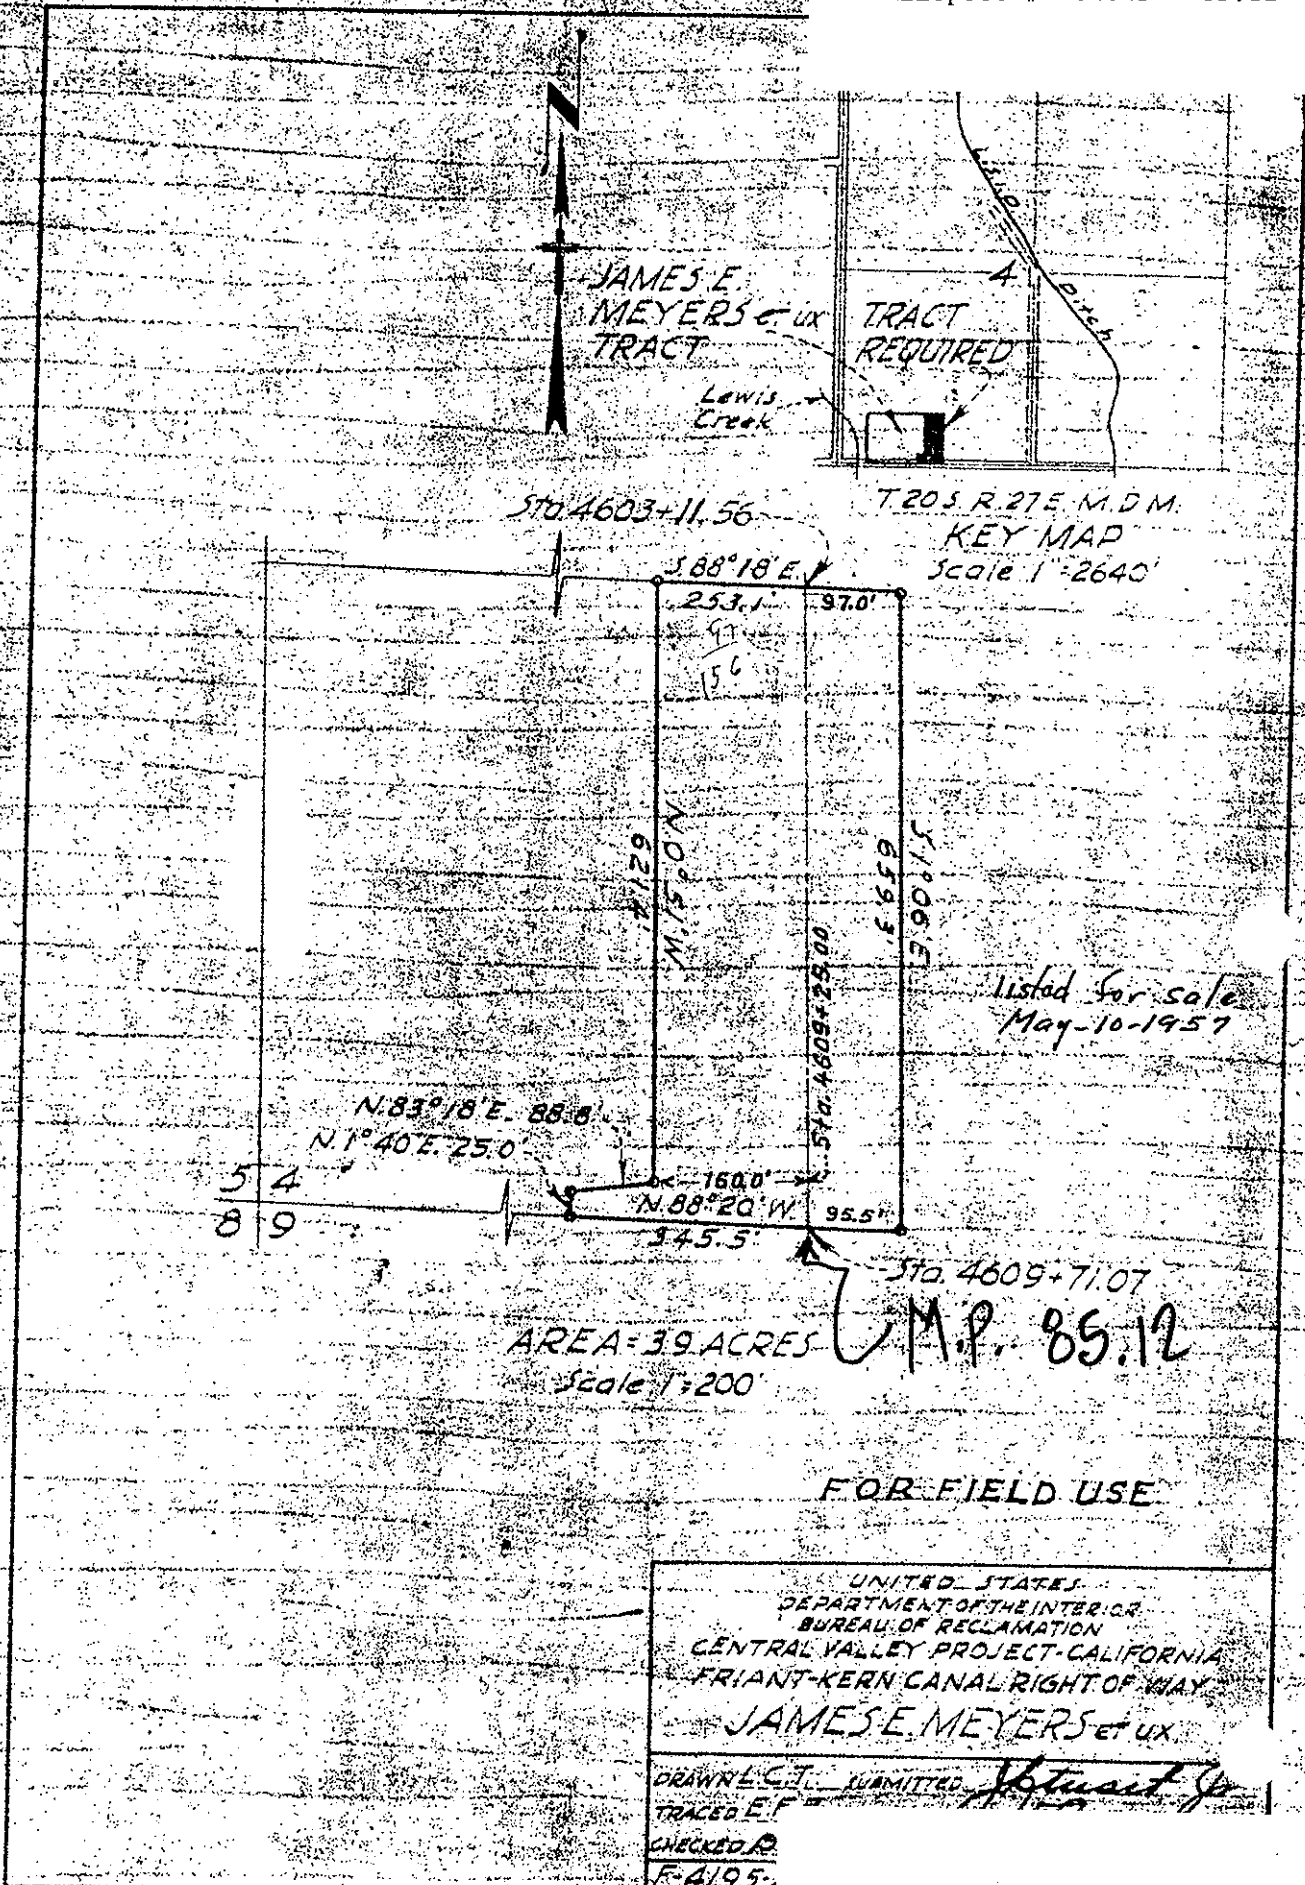 N
JAMES E.
MEYERS et ux
TRACT
TRACT
REQUIRED
4
L.S.I.D.
Ditch
Lewis
Creek
T.20 S. R.27 E. M.D.M.
KEY MAP
Scale 1"=2640'
Sta. 4603+11.56
S. 88°18' E.
253.1'
97.0'
97
15.6
N. 0°51' W.
621.4'
S. 1°06' E.
659.3'
Sta. 4609+25.00
listed for sale
May-10-1957
N. 83°18' E. 88.8'
N. 1°40' E. 25.0'
5 4
8 9
160.0'
N. 88°20' W.
345.5'
95.5'
Sta. 4609+71.07
M.P. 85.12
AREA = 3.9 ACRES
Scale 1"=200'
FOR FIELD USE
UNITED STATES
DEPARTMENT OF THE INTERIOR
BUREAU OF RECLAMATION
CENTRAL VALLEY PROJECT-CALIFORNIA
FRIANT-KERN CANAL RIGHT OF WAY
JAMES E. MEYERS et ux.
DRAWN L.C.T. SUBMITTED
TRACED E.F.
CHECKED